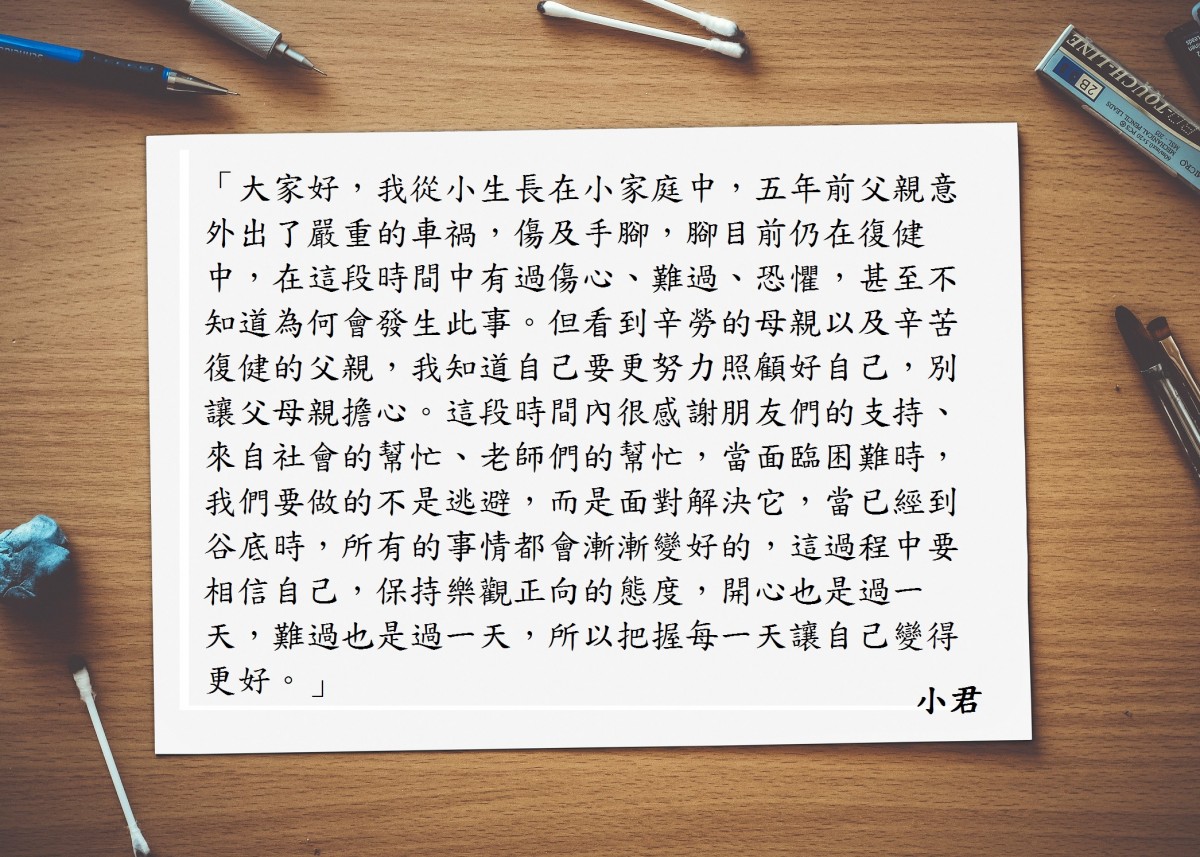 「大家好，我從小生長在小家庭中，五年前父親意
外出了嚴重的車禍，傷及手腳，腳目前仍在復健
中，在這段時間中有過傷心、難過、恐懼，甚至不
知道為何會發生此事。但看到辛勞的母親以及辛苦
復健的父親，我知道自己要更努力照顧好自己，別
讓父母親擔心。這段時間內很感謝朋友們的支持、
來自社會的幫忙、老師們的幫忙，當面臨困難時，
我們要做的不是逃避，而是面對解決它，當已經到
谷底時，所有的事情都會漸漸變好的，這過程中要
相信自己，保持樂觀正向的態度，開心也是過一
天，難過也是過一天，所以把握每一天讓自己變得
更好。」
小君
TOUCH-LINE
2B
MECHANICAL PENCIL LEADS